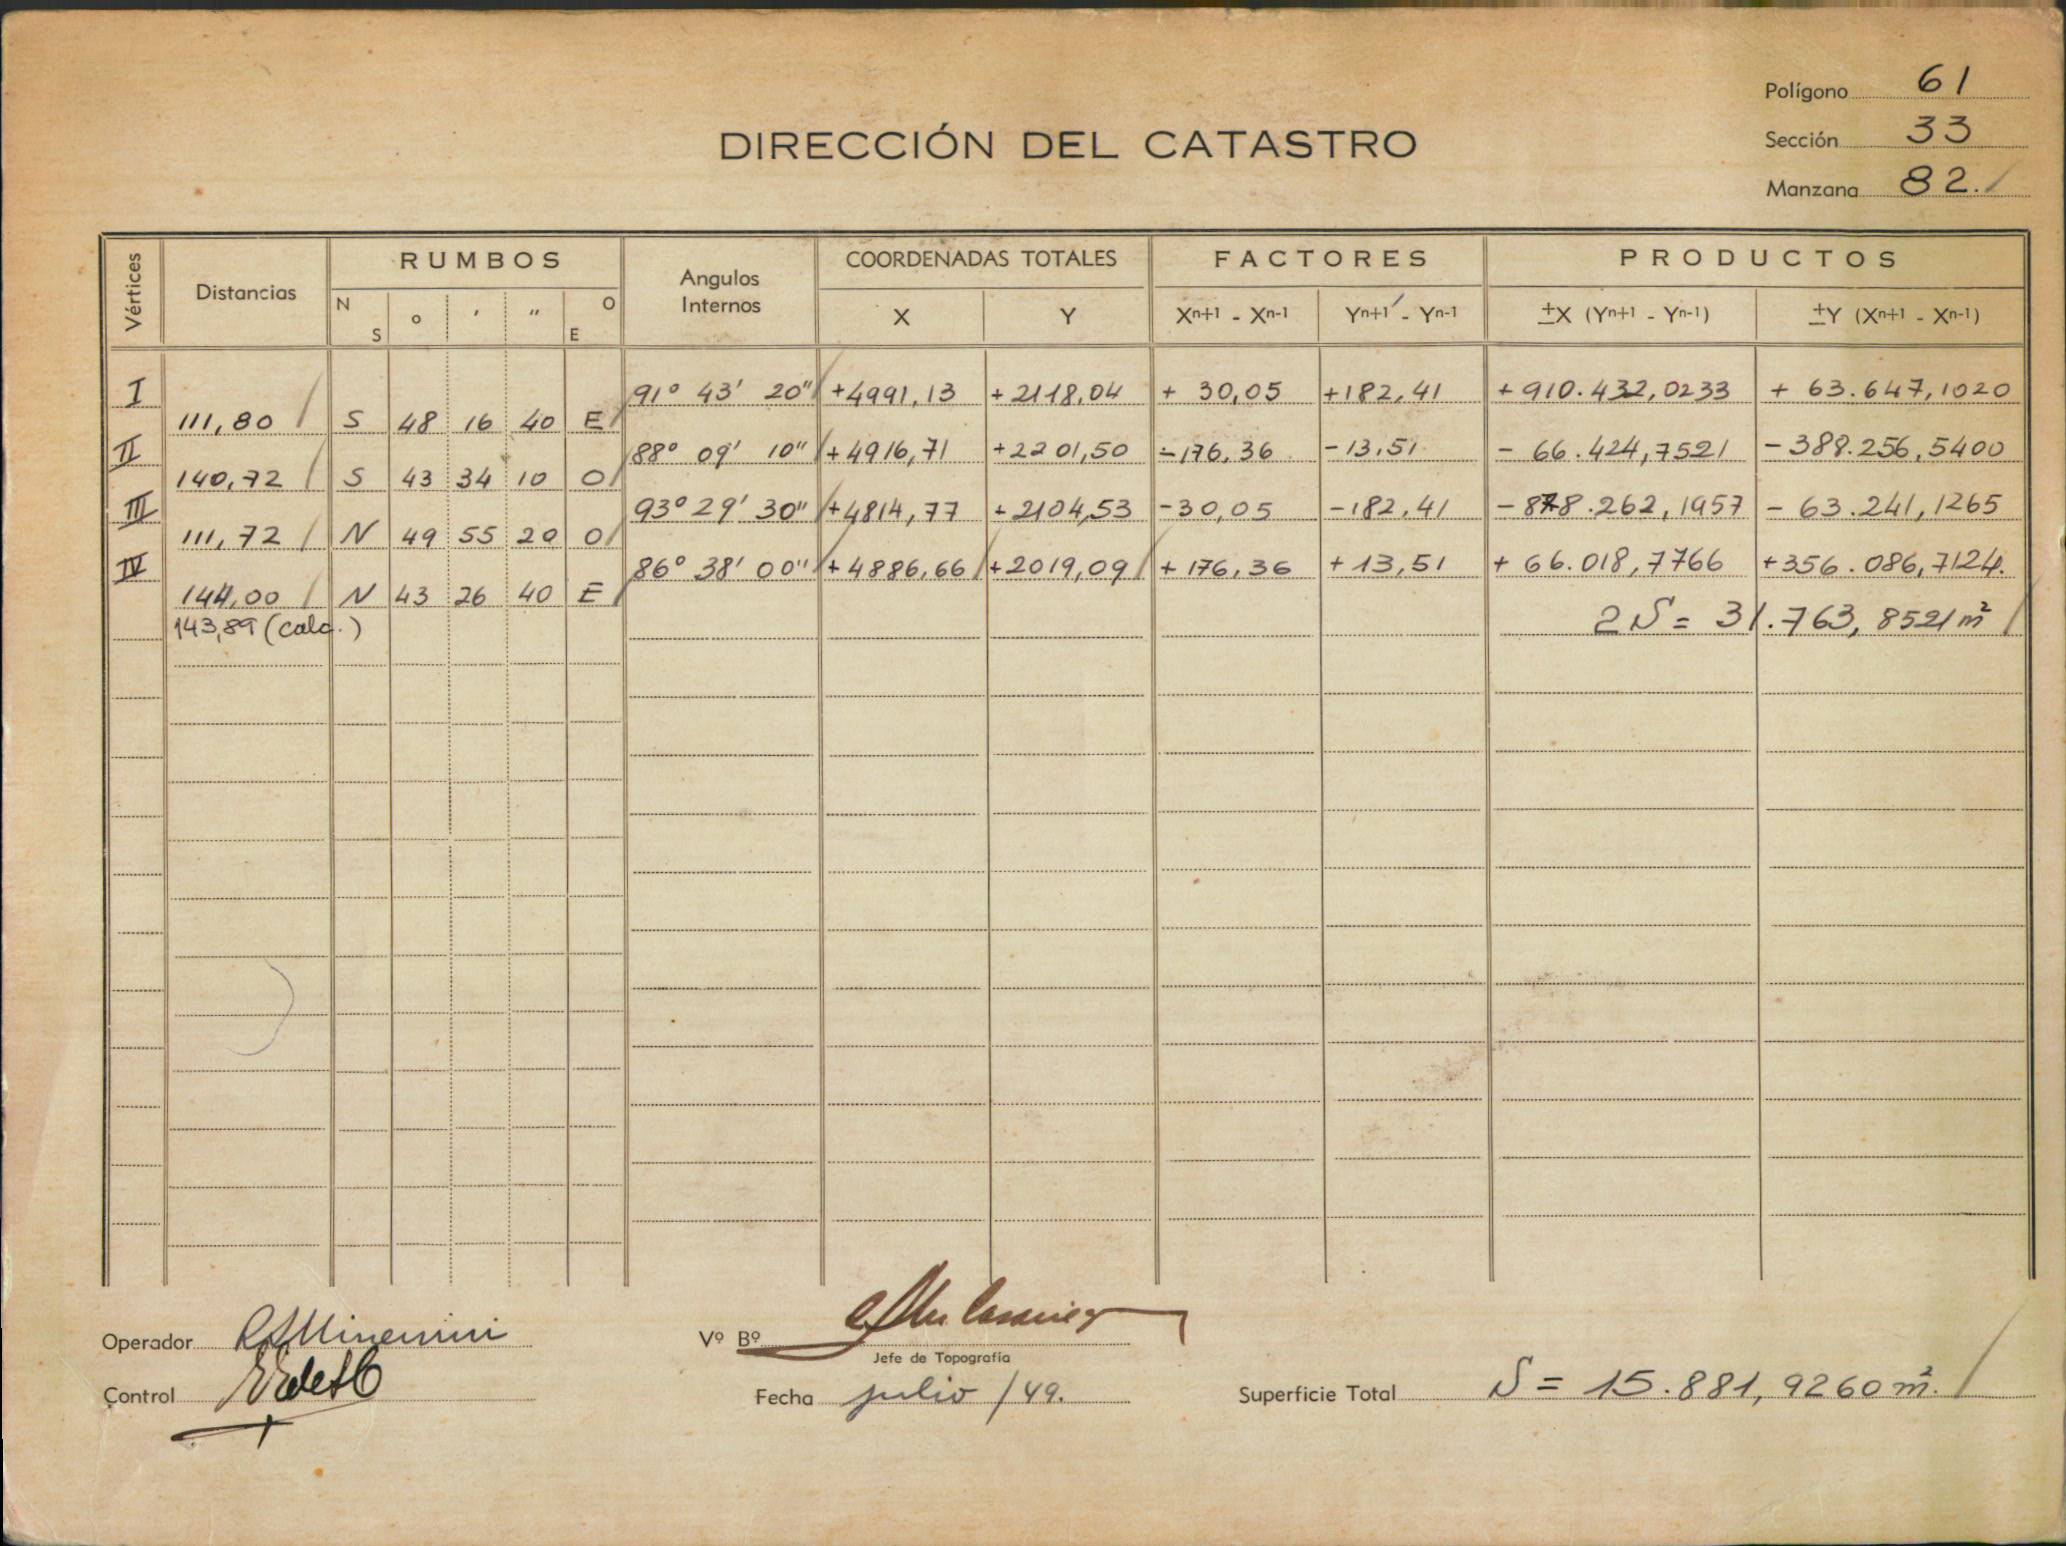 Polígono 61
DIRECCIÓN DEL CATASTRO
Sección 33
Manzana 82.
Vértices Distancias RUMBOS Angulos Internos COORDENADAS TOTALES FACTORES PRODUCTOS
N S ° ' " O E X Y Xn+1 - Xn-1 Yn+1 - Yn-1 ±X (Yn+1 - Yn-1) ±Y (Xn+1 - Xn-1)
I 91° 43' 20" +4991,13 +2118,04 + 30,05 +182,41 +910.432,0233 + 63.647,1020
111,80 S 48 16 40 E
II 88° 09' 10" +4916,71 +2201,50 -176,36 -13,51 - 66.424,7521 -388.256,5400
140,72 S 43 34 10 O
III 93° 29' 30" +4814,77 +2104,53 -30,05 -182,41 -878.262,1957 - 63.241,1265
111,72 N 49 55 20 O
IV 86° 38' 00" +4886,66 +2019,09 +176,36 +13,51 + 66.018,7766 +356.086,7124.
144,00 N 43 26 40 E
143,89 (calc.) 2S = 31.763,8521 m²
Operador Vº Bº
Jefe de Topografía
Control Fecha julio /49. Superficie Total S = 15.881,9260 m².